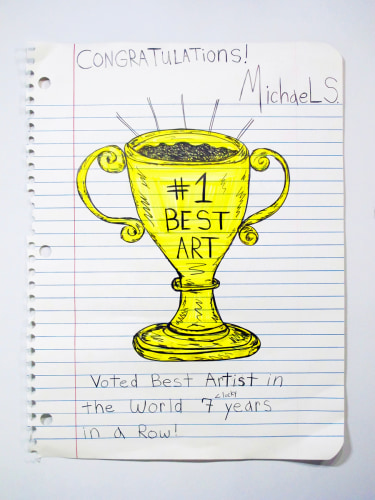 CONGRATULATIONS!
MichaeL S.
#1
BEST
ART
Voted Best Artist in
the World 7 lucky years
in a Row!